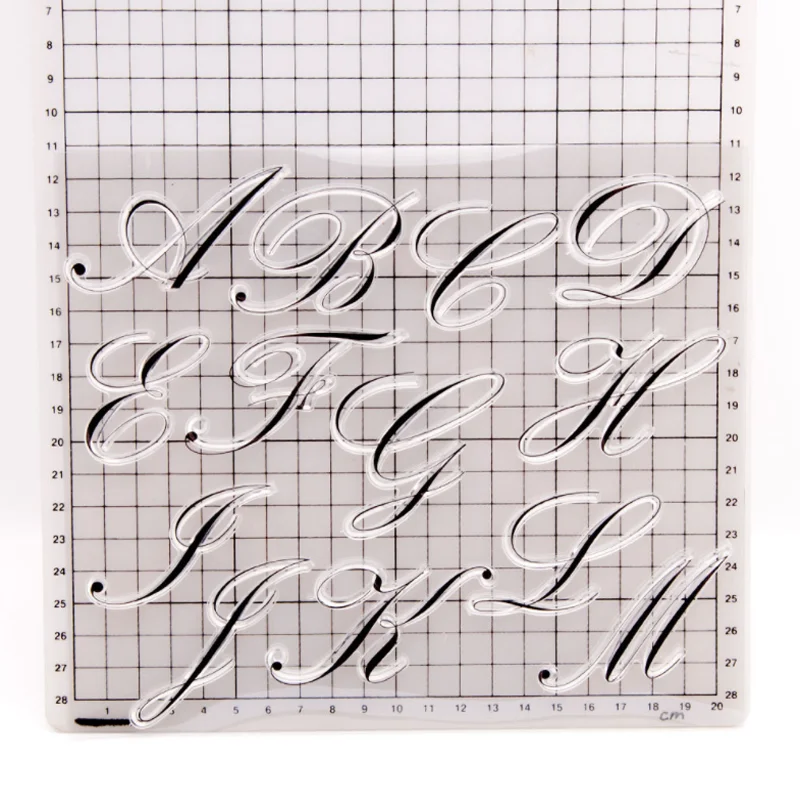 7 7
8 8
9 9
10 10
11 11
12 12
13 13
14 14
15 15
16 16
17 7
18 18
19 19
20 20
21 21
22 22
23 23
24 24
25 25
26 26
27 27
28 28
A B C D
E F G H
I J K L M
1 3 4 5 6 7 8 9 10 11 12 13 14 15 16 17 18 19 20
cm